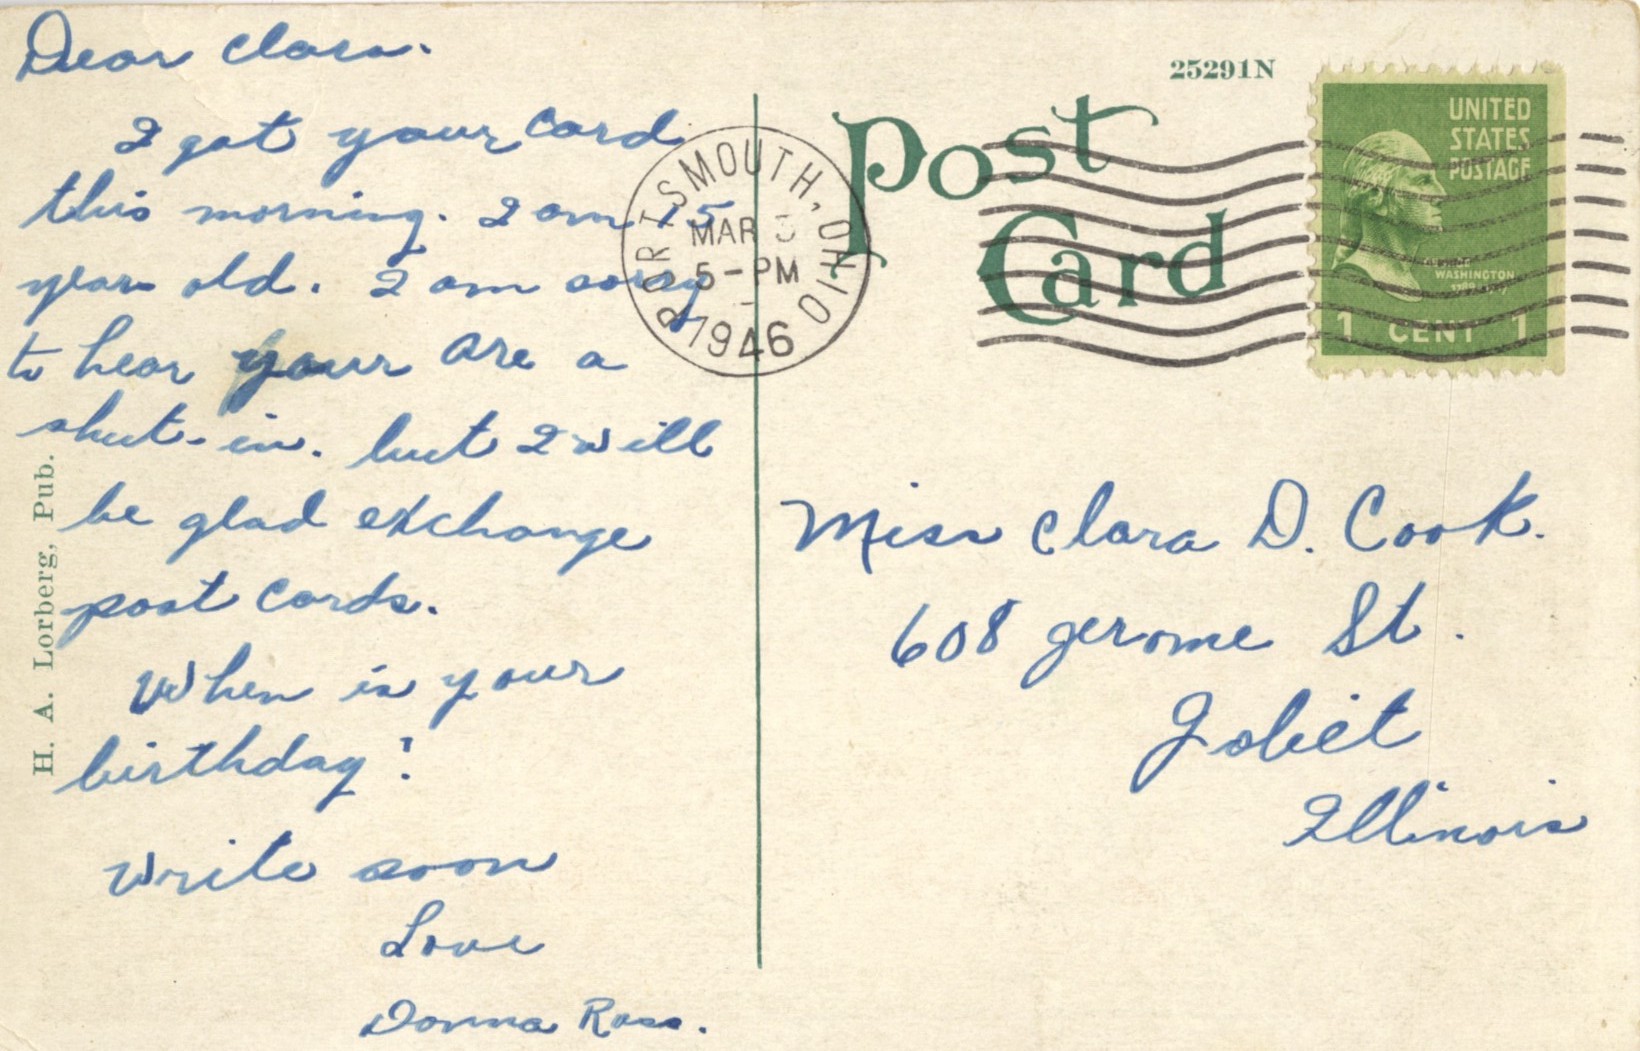 Dear Clara.
I got your card
this morning. I am 15
years old. I am sorry
to hear your are a
shut-in. but I will
be glad exchange
post cards.
When is your
birthday?
write soon
Love
Donna Ross.
H. A. Lorberg, Pub.
25291N
Post
Card
PORTSMOUTH, OHIO
MAR
5-PM
1946
UNITED
STATES
POSTAGE
WASHINGTON
1 CENT 1
Miss Clara D. Cook.
608 Jerome St.
Joliet
Illinois